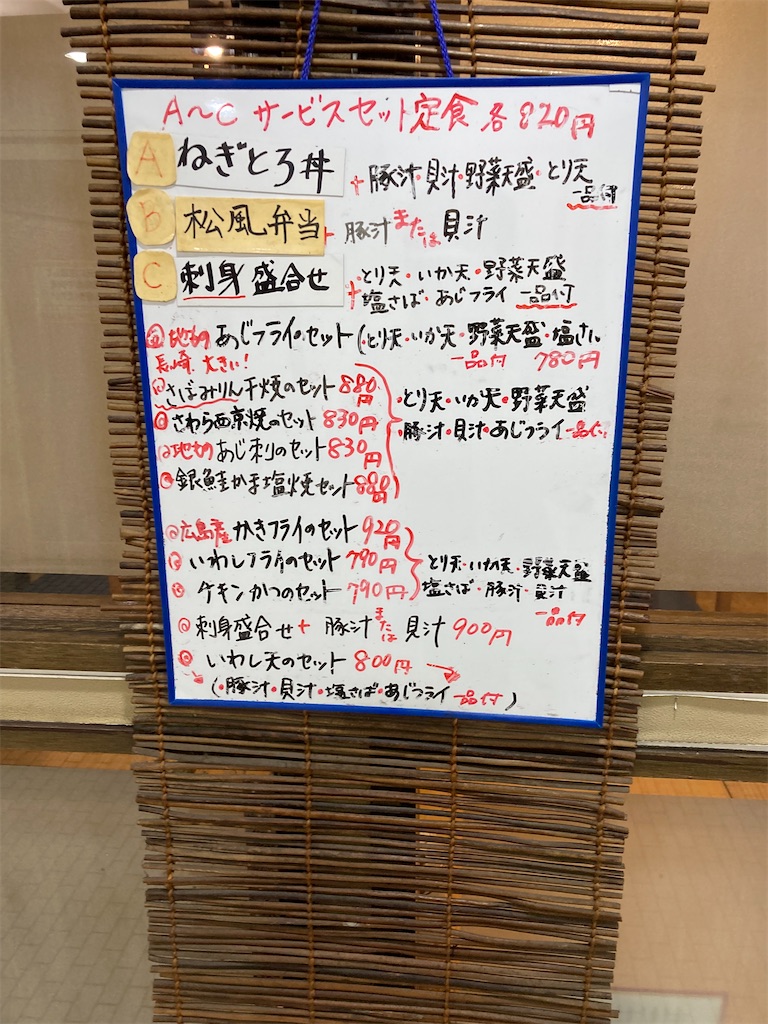 A～C サービスセット定食 各820円
A ねぎとろ丼 + 豚汁・貝汁・野菜天盛・とり天
一品付
B 松風弁当 + 豚汁または貝汁
C 刺身盛合せ + とり天・いか天・野菜天盛
塩さば・あじフライ 一品付
あじフライのセット (・とり天・いか天・野菜天盛・塩さば
長崎 大きい! 一品付 780円
さばみりん干焼のセット 880円
とり天・いか天・野菜天盛
さわら西京焼のセット 830円
・豚汁・貝汁・あじフライ 一品付
あじ刺しのセット 830円
銀鮭かま塩焼セット 880円
広島産かきフライのセット 920円
いわしフライのセット 790円
とり天・いか天・野菜天盛
チキンかつのセット 790円
塩さば・豚汁・貝汁
一品付
刺身盛合せ + 豚汁または貝汁 900円
いわし天のセット 800円
(・豚汁・貝汁・塩さば・あじフライ 一品付)